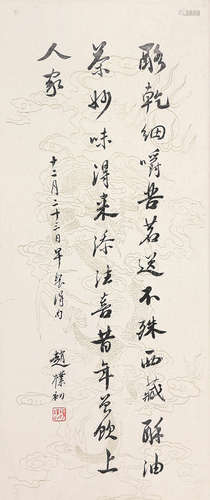 酪乾細嚼苦茗送不殊西藏酥油
茶妙味得来添法喜昔年曾飲上
人家
十二月二十三日早餐得句
趙樸初